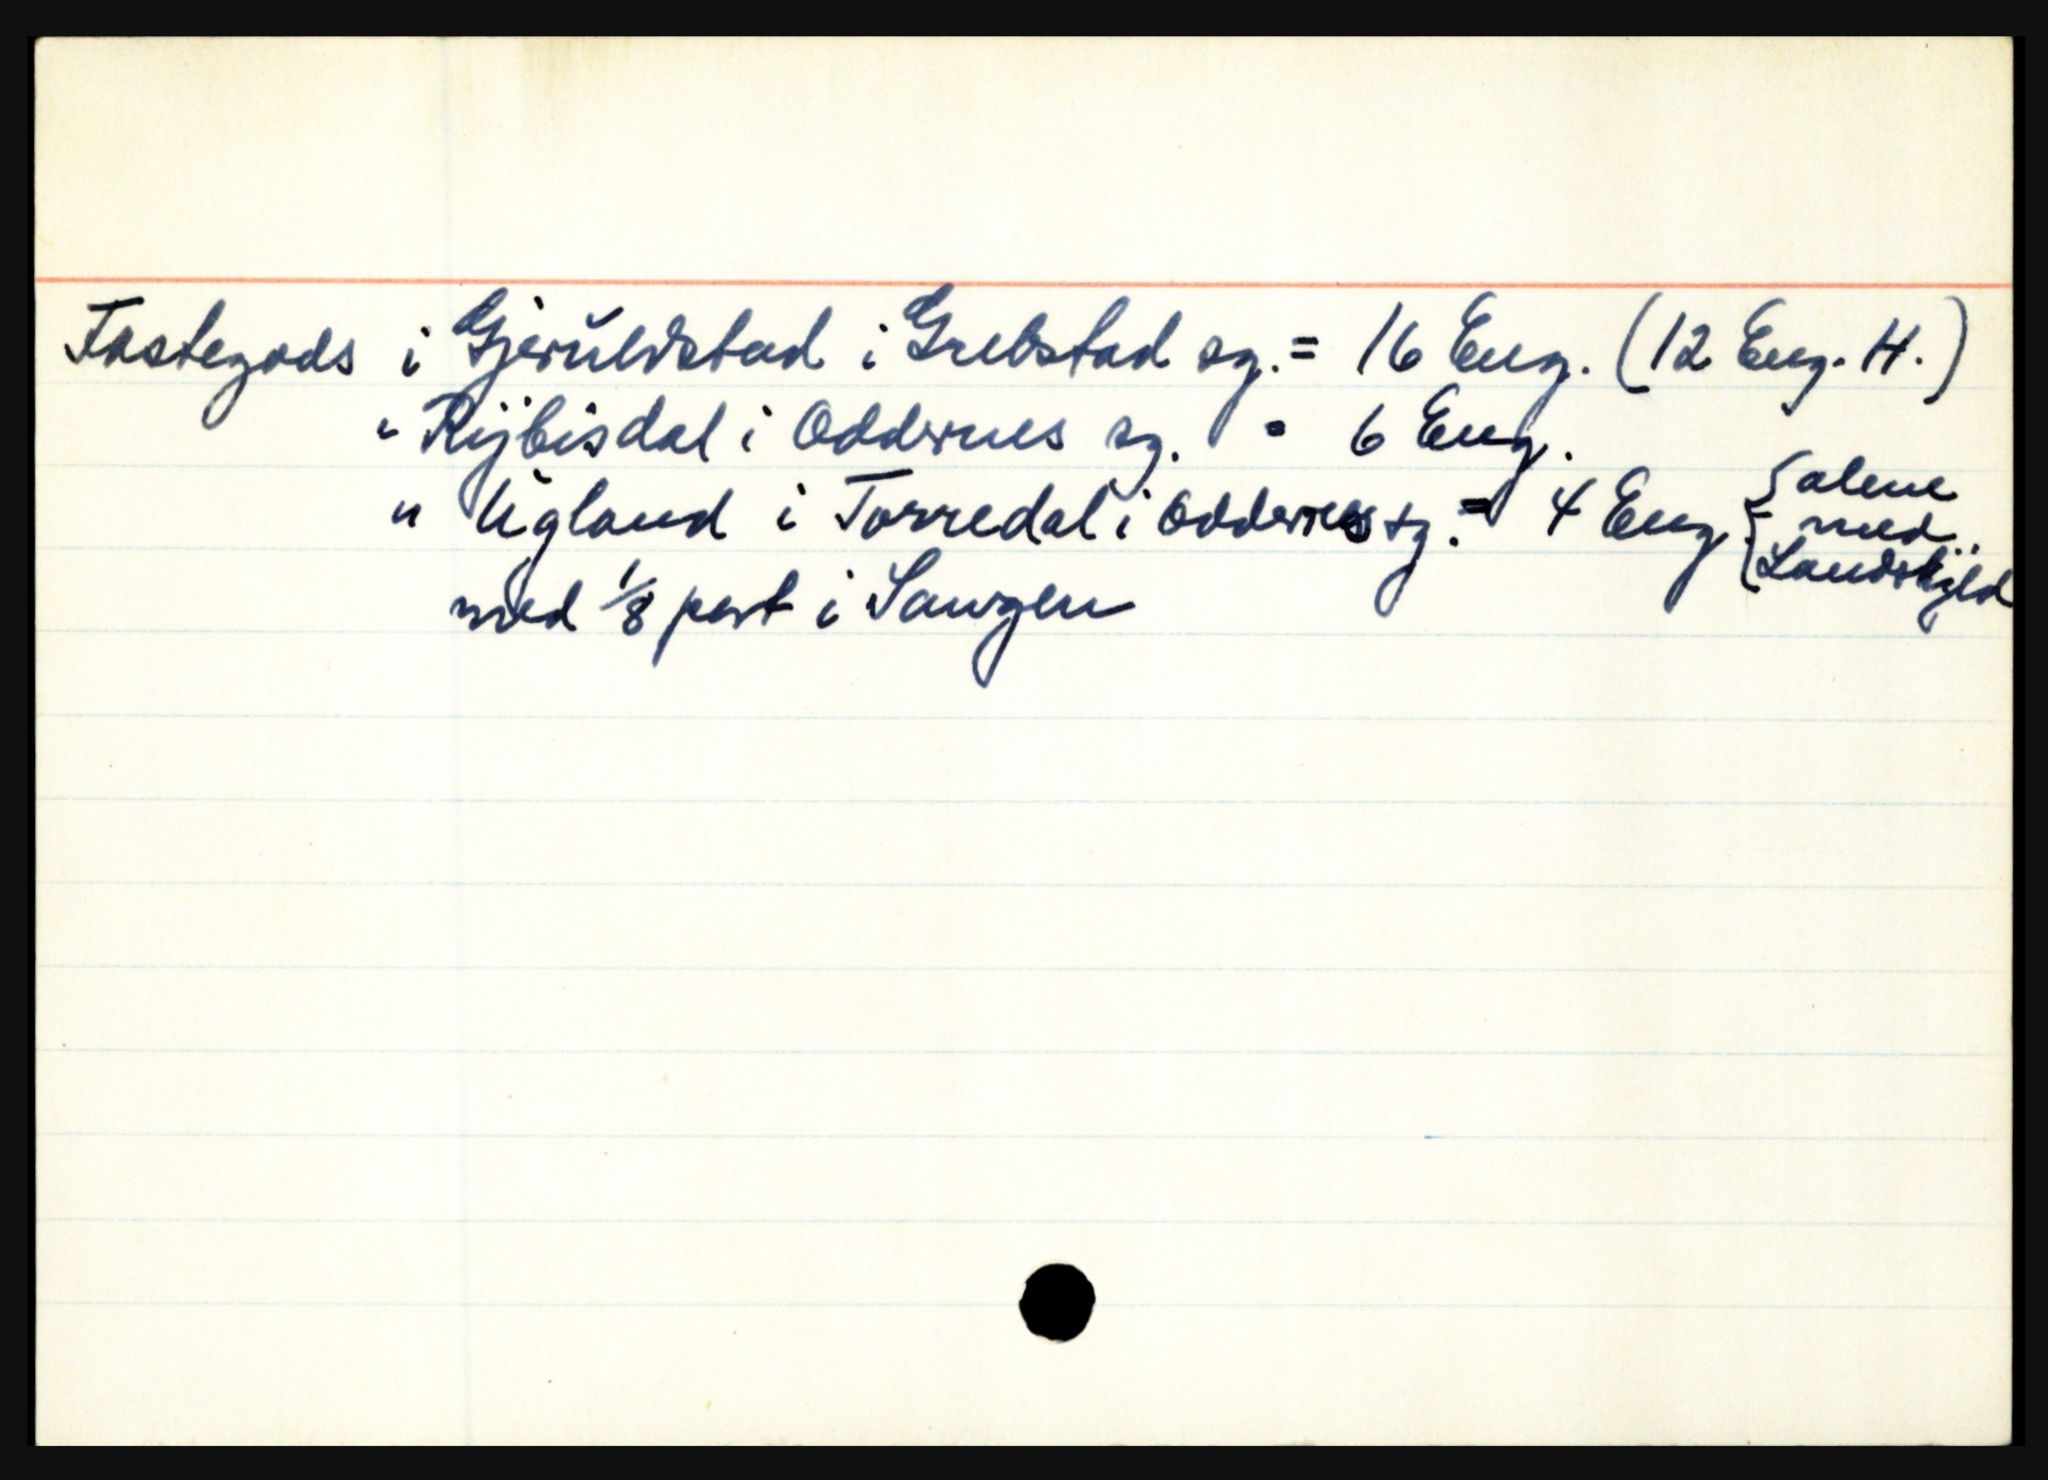 Fastegods i Gjerŭldstad i Grebstad sg. = 16 Eng. (12 Eng. H.)
" Rÿbisdal i Oddernes sg. = 6 Eng.
" Ŭgland i Torredal i Oddernes sg. = 4 Eng. { alene
med
Landskÿld
med 1/8 part i Saugen